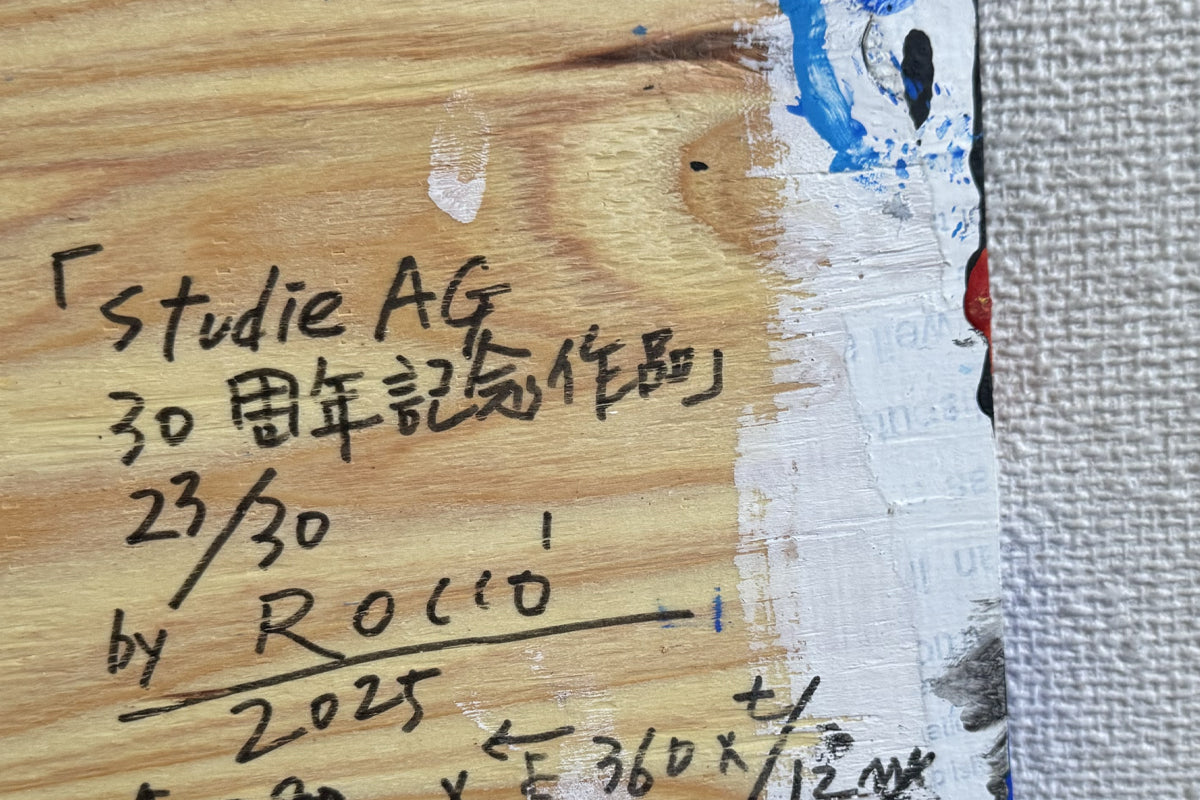 「studie AG
30周年記念作品」
23/30
by Rocco
2025
360 x t/12